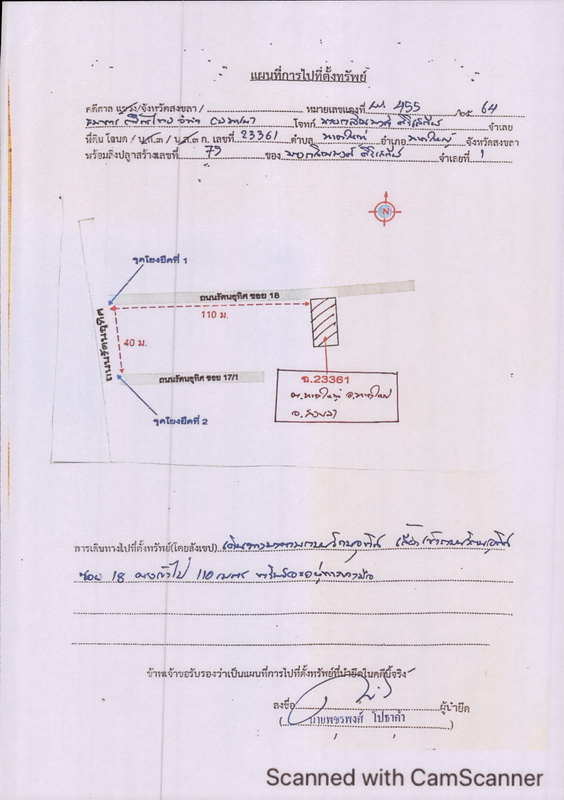 แผนที่การไปที่ตั้งทรัพย์
คดีศาล แขวง/จังหวัดสงขลา / หมายเลขแดงที่ ผบ. 455 /๒๕ 64
ธนาคาร ไทย จำกัด (มหาชน) โจทก์ จำเลย
ที่ดิน โฉนด / น.ส.๓ / น.ส.๓ ก. เลขที่ 23361 ตำบล หาดใหญ่ อำเภอ หาดใหญ่ จังหวัดสงขลา
พร้อมสิ่งปลูกสร้างเลขที่ 79 ของ จำเลยที่ 1
N
จุดโยงยึดที่ 1
ถนนรัตนอุทิศ ซอย 18
110 ม.
ถนนรัตนอุทิศ
40 ม.
ถนนรัตนอุทิศ ซอย 17/1
ฉ.23361
ต.หาดใหญ่ อ.หาดใหญ่
จ.สงขลา
จุดโยงยึดที่ 2
การเดินทางไปที่ตั้งทรัพย์(โดยสังเขป) เดินทางมาตามถนนรัตนอุทิศ เข้าถนนรัตนอุทิศ
ซอย 18 ตรงเข้าไป 110 เมตร ทรัพย์จะอยู่ทางขวามือ
ข้าพเจ้าขอรับรองว่าเป็นแผนที่การไปที่ตั้งทรัพย์ที่นำยึดในคดีนี้จริง
ลงชื่อ ผู้นำยึด
( นายพชรพงศ์ โปธาคำ )
Scanned with CamScanner